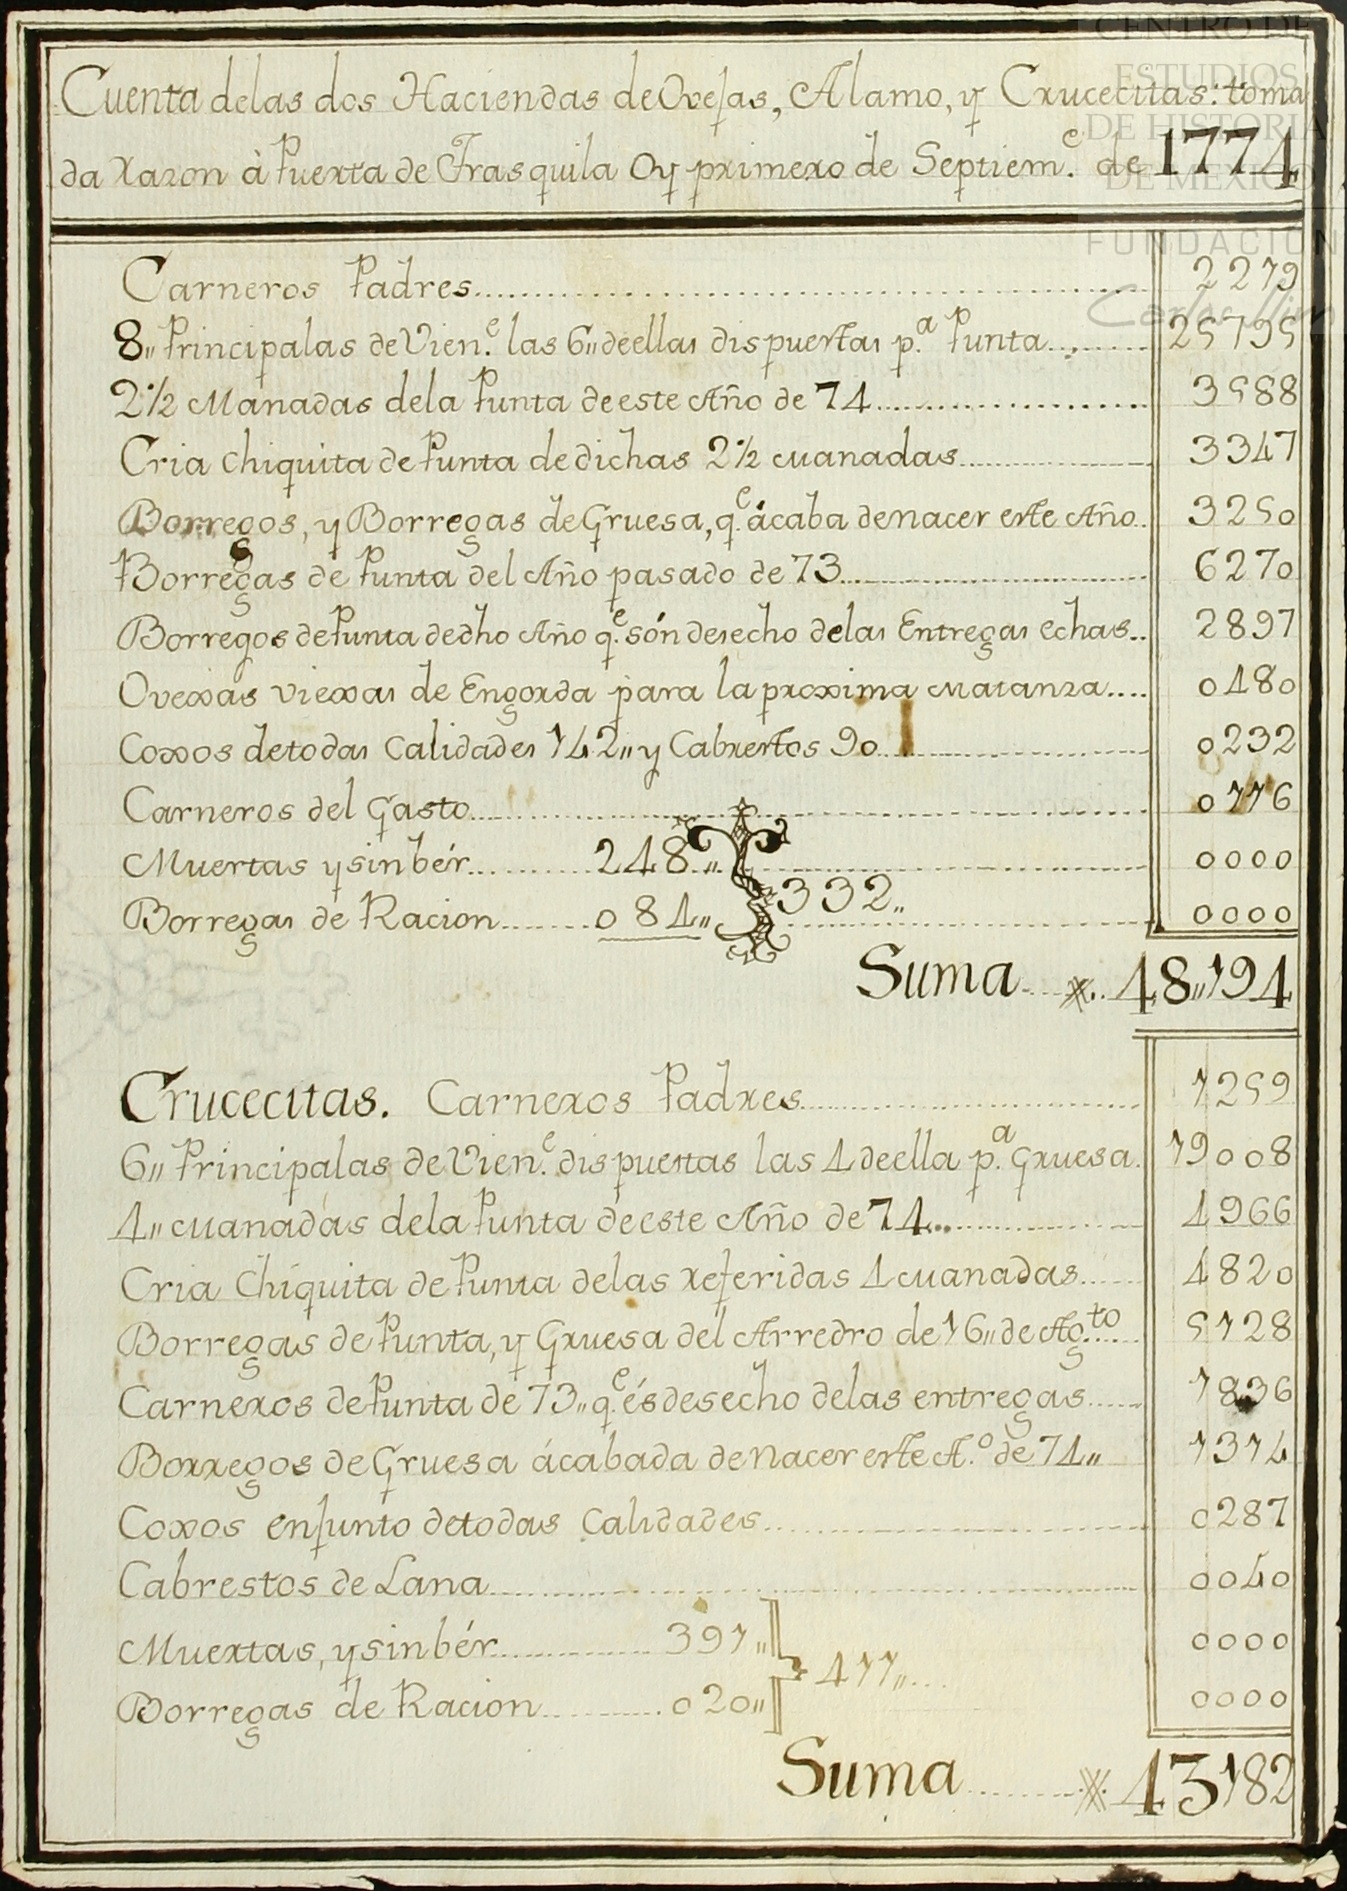 CENTRO DE
ESTUDIOS
DE HISTORIA
DE MEXICO
FUNDACIÓN
Carlos Slim
Cuenta delas dos Haciendas de Ovejas, Alamo, y Crucecitas: toma
da razon à Puerta de Trasquila Oy primero de Septiem.e de 1774
Carneros Padres 2219
8,, Principalas de Vien.e las 6,, de ellas dispuestas p.a Punta 25795
2 1/2 Manadas dela Punta de este Año de 74 3588
Cria chiquita de Punta de dichas 2 1/2 manadas 3347
Borregos, y Borregas de Gruesa, q.e ácaba de nacer este Año 3250
Borregas de Punta del Año pasado de 73 6270
Borregos de Punta de dho Año q.e són desecho delas Entregas echas 2897
Ovexas viexas de Engorda para la proxima matanza 0480
Coxos de todas Calidades 142,, y Cabrestos 90 0232
Carneros del Gasto 0116
Muertas y sin bér 248,, 0000
332,,
Borregas de Racion 084,, 0000
Suma 48,,194
Crucecitas. Carneros Padres 1259
6,, Principalas de Vien.e dispuestas las 4 de ella p.a Gruesa 19008
4,, manadas dela Punta de este Año de 74 4966
Cria Chiquita de Punta delas referidas 4 manadas 4820
Borregas de Punta, y Gruesa del Arredro de 16,, de Ag.to 5128
Carneros de Punta de 73,, q.e és desecho delas entregas 1836
Borregos de Gruesa ácabada de nacer este A.o de 74,, 1314
Coxos enjunto de todas Calidades 0287
Cabrestos de Lana 0040
Muertas, y sin bér 391,, 0000
411,,
Borregas de Racion 020,, 0000
Suma 43182